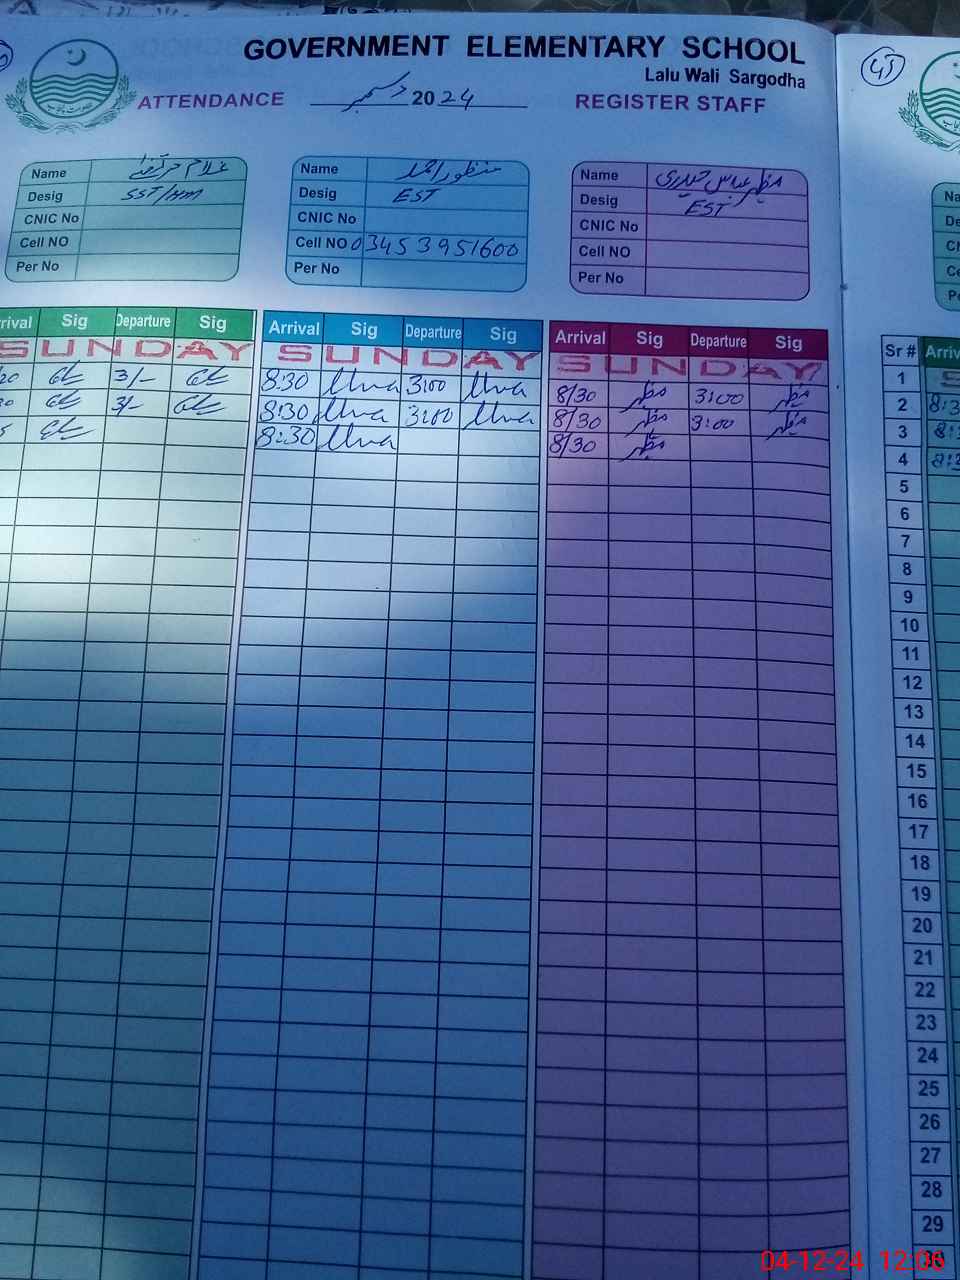 GOVERNMENT ELEMENTARY SCHOOL
Lalu Wali Sargodha
ATTENDANCE دسمبر 2024 REGISTER STAFF
45
Name غلام مرتضیٰ
Desig SST/HM
CNIC No
Cell NO
Per No
Name منظور احمد
Desig EST
CNIC No
Cell NO 03453951600
Per No
Name مظہر عباس حیدری
Desig EST
CNIC No
Cell NO
Per No
rival Sig Departure Sig
SUNDAY
20 3/-
3/-
Arrival Sig Departure Sig
SUNDAY
8:30 3:00
8:30 3:00
8:30
Arrival Sig Departure Sig
SUNDAY
8/30 مظہر 3:00 مظہر
8/30 مظہر 3:00 مظہر
8/30 مظہر
Na
De
Sr # Arriv
1 S
2 8:3
3 8:3
4 8:3
5
6
7
8
9
10
11
12
13
14
15
16
17
18
19
20
21
22
23
24
25
26
27
28
29
04-12-24 12:06